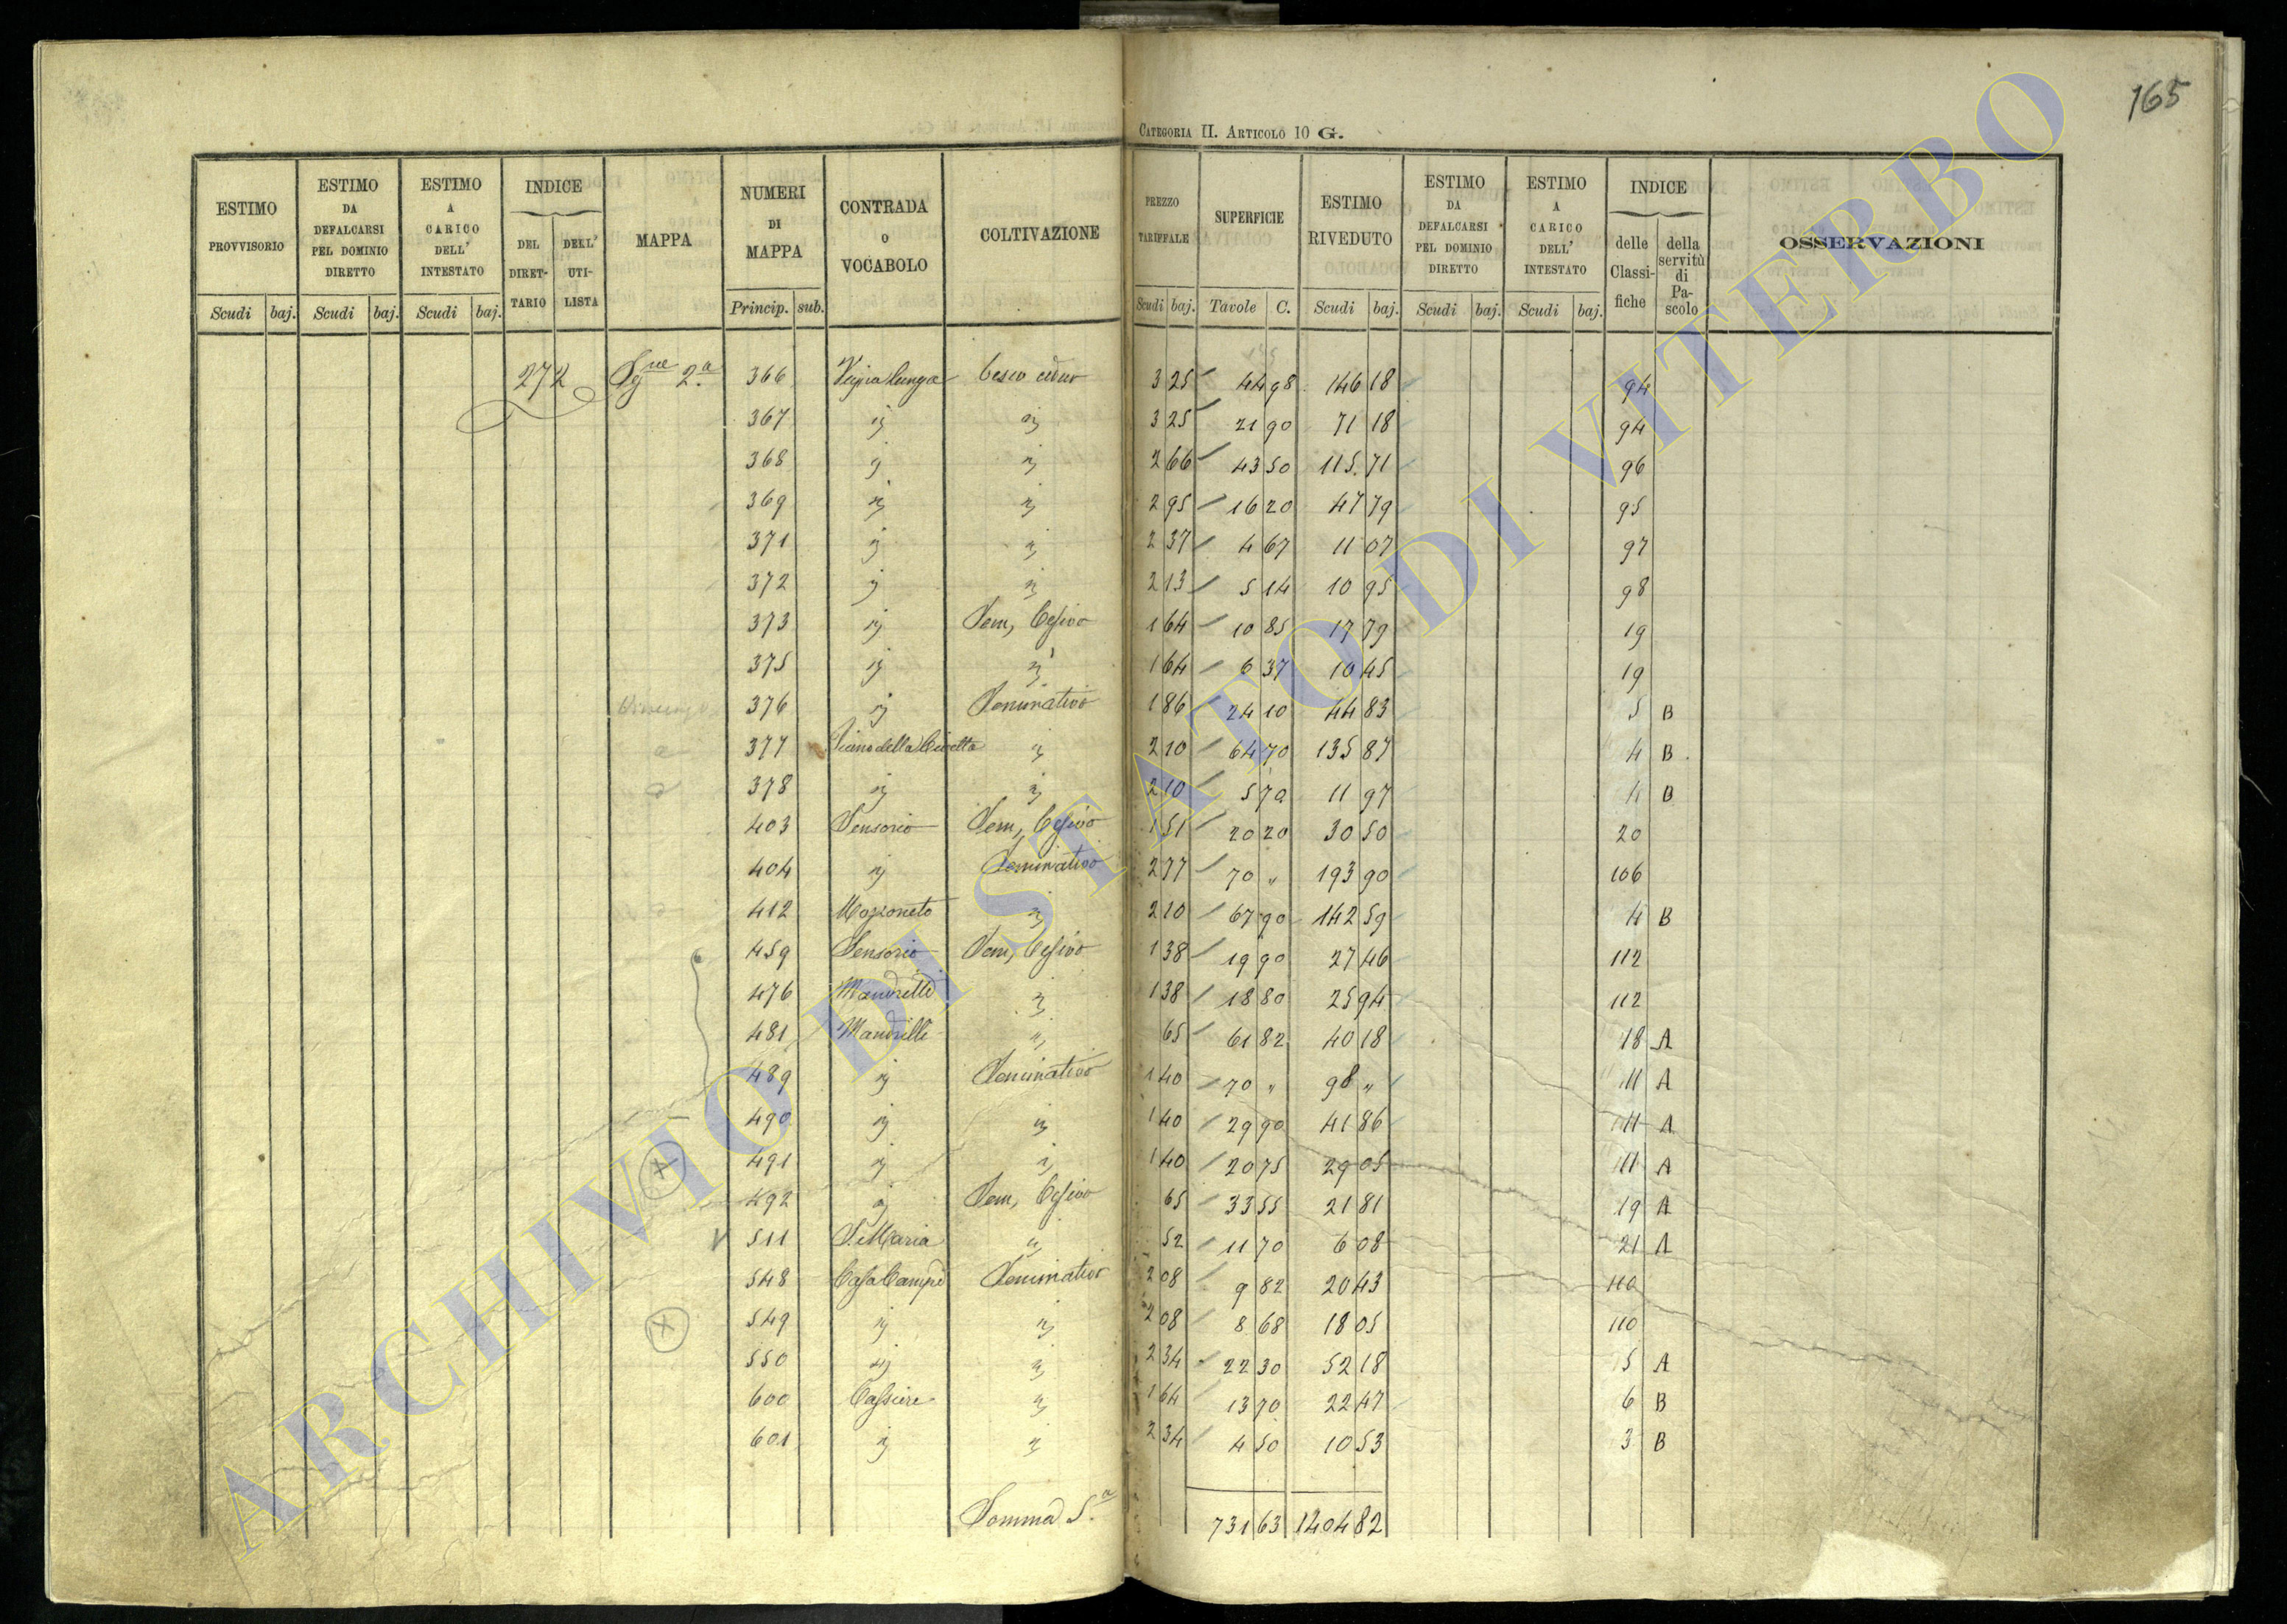 165
CATEGORIA II. ARTICOLO 10 G.
ESTIMO PROVVISORIO Scudi baj. ESTIMO DA DEFALCARSI PEL DOMINIO DIRETTO Scudi baj. ESTIMO A CARICO DELL' INTESTATO Scudi baj. INDICE DEL DIRETTARIO DELL' UTILISTA MAPPA NUMERI DI MAPPA Princip. sub. CONTRADA O VOCABOLO COLTIVAZIONE PREZZO TARIFFALE Scudi baj. SUPERFICIE Tavole C. ESTIMO RIVEDUTO Scudi baj. ESTIMO DA DEFALCARSI PEL DOMINIO DIRETTO Scudi baj. ESTIMO A CARICO DELL' INTESTATO Scudi baj. INDICE delle Classifiche della servitù di Pascolo OSSERVAZIONI
272 2ª 366 bosco ceduo 3 25 44 98 146 18 94
367 " " 3 25 21 90 71 18 94
368 " " 2 66 43 50 115 71 96
369 " " 2 95 16 20 47 79 95
371 " " 2 37 4 67 11 07 97
372 " " 2 13 5 14 10 95 98
373 " Sem, Cesivo 1 64 10 85 17 79 19
375 " " 1 64 6 37 10 45 19
376 " Seminativo 1 86 24 10 44 83 5 B
377 Piano della " 2 10 64 70 135 87 4 B
378 " " 2 10 5 70 11 97 4 B
403 Sensorio Sem, Cesivo 1 51 20 20 30 50 20
404 " Seminativo 2 77 70 " 193 90 106
412 Mozzoneto " 2 10 67 90 142 59 4 B
459 Sensorio Sem, Cesivo 1 38 19 90 27 46 112
476 Mandrelle " 1 38 18 80 25 94 112
481 Mandrelle " 65 61 82 40 18 18 A
489 " Seminativo 1 40 70 " 98 " 11 A
490 " " 1 40 29 90 41 86 11 A
491 " " 1 40 20 75 29 05 11 A
492 " Sem, Cesivo 65 33 55 21 81 19 A
511 S. Maria " 52 11 70 6 08 21 A
548 Seminativo 2 08 9 82 20 43 110
549 " " 2 08 8 68 18 05 110
550 " " 2 34 22 30 52 18 5 A
600 " 1 64 13 70 22 47 6 B
601 " " 2 34 4 50 10 53 3 B
Somma S.ª 731 63 1404 82
ARCHIVIO DI STATO DI VITERBO